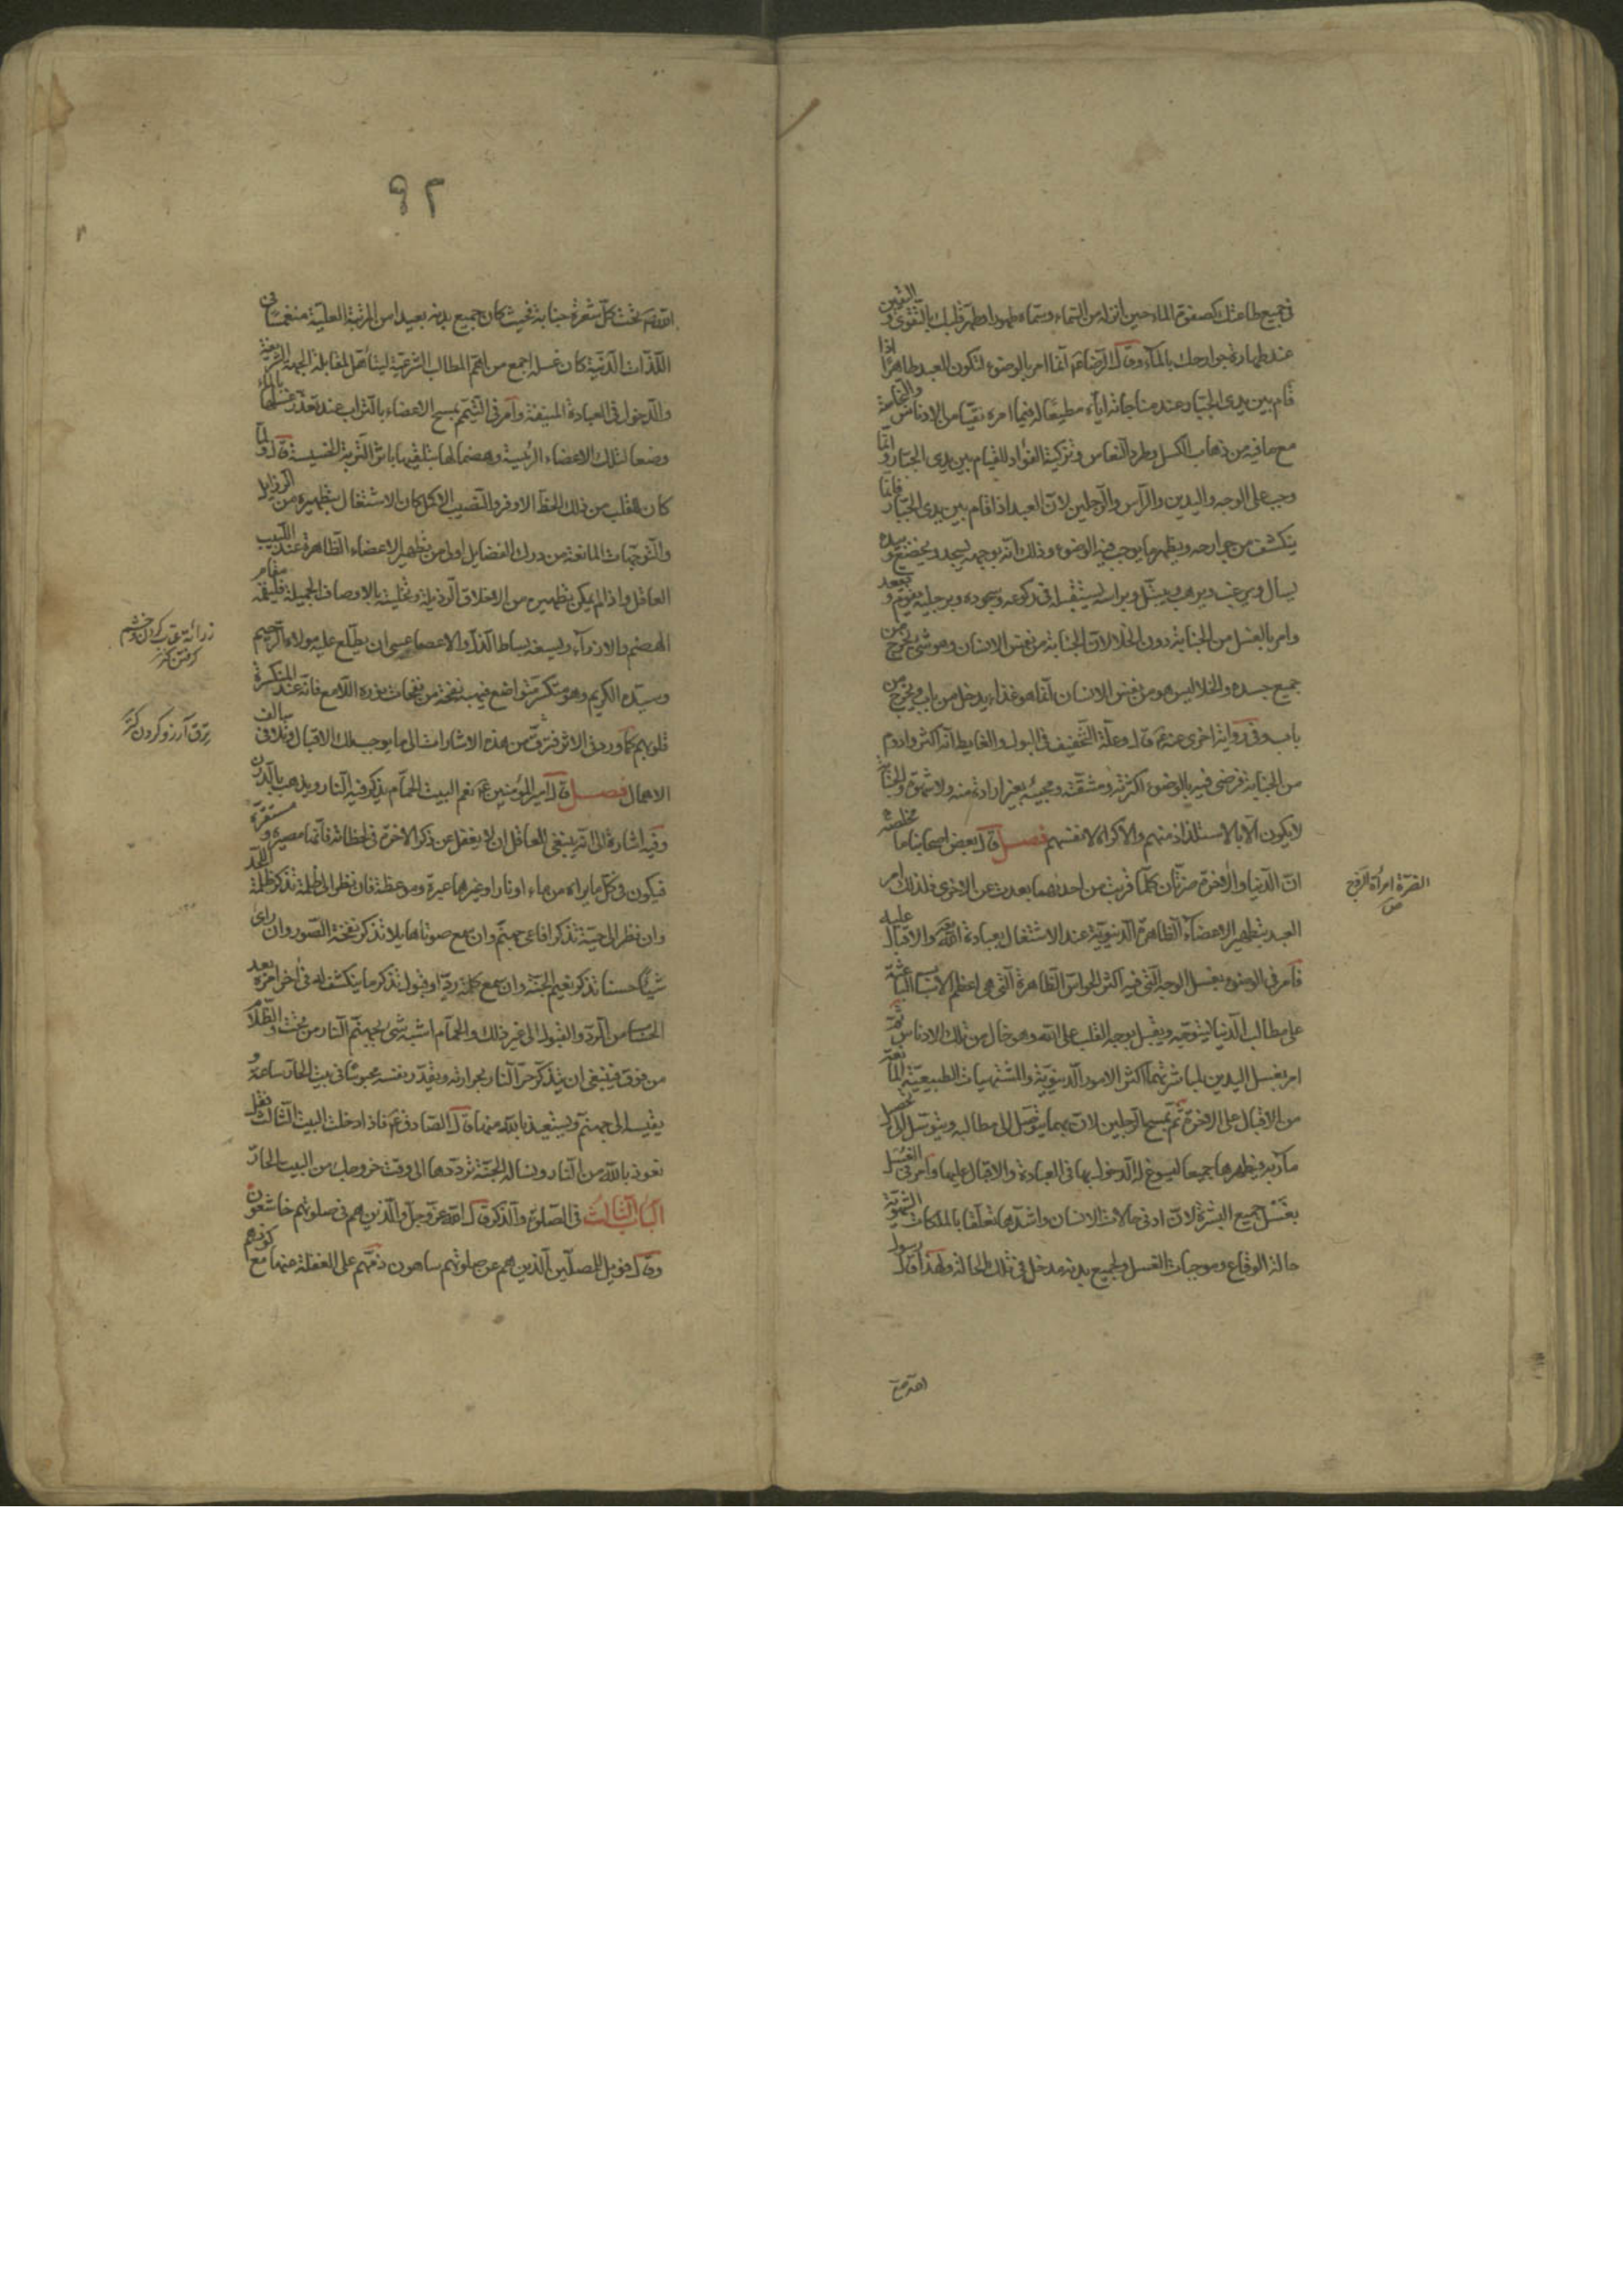 في جميع طاعتك كصفوة الماء حين انزله من السماء وسماه طهورا وطهر قلبك بالتقوى و اليقين
عند طهارة جوارحك بالماء وقال الرضا ع انما امر بالوضوء لتكون العبد طاهرا اذا
قام بين يدي الجبار وعند مناجاته اياه مطيعا له فيما امره نقيا من الادناس والنجاسة
مع ما فيه من ذهاب الكسل وطرد النعاس وتزكية الفؤاد للقيام بين يدي الجبار وانما
وجب على الوجه واليدين والراس والرجلين لان العبد اذا قام بين يدي الجبار فانما
ينكشف من جوارحه ويظهر ما يوجب فيه الوضوء وذلك انه بوجهه يسجد ويخضع وبيده
يسال ويرغب ويرهب ويتبتل وبراسه يستقبله في ركوعه وسجوده وبرجليه يقوم ويقعد
وامر بالغسل من الجنابة دون الخلا لان الجنابة من نفس الانسان وهو شئ يخرج من
جميع جسده والخلا ليس هو من نفس الانسان انما هو غذاء يدخل من باب ويخرج من
باب وفي رواية اخرى عنه ع قال وعلة التخفيف في البول والغايط انه اكثر وادوم
من الجنابة فرضي فيه بالوضوء لكثرته ومشقته ومجيئه بغير ارادة منه ولا شهوة والجنابة
لا يكون الا بالاستلذاذ منهم والاكراه لانفسهم فصل قال بعض اصحابنا ما ملخصه
ان الدنيا والاخرة ضرتان كلما قربت من احدهما بعدت عن الاخرى فلذلك امر
العبد بتطهير الاعضاء الظاهرة الدنيوية عند الاشتغال بعبادة الله والاقبال عليه
فامر في الوضوء بغسل الوجه التي فيه اكثر الحواس الظاهرة التي هي اعظم الاسباب الباعثة
على مطالب الدنيا ليتوجه ويقبل بوجه القلب على الله وهو خال من تلك الادناس ثم
امر بغسل اليدين لمباشرتهما اكثر الامور الدنيوية والمشتهيات الطبيعية المانعة
من الاقبال على الاخرة ثم بمسح الرجلين لان بهما يتوصل الى مطالبه ويتوسل الى تحصيل
مآربه ويطهرها جميعا ليسوغ له الدخول بها في العبادة والاقبال عليها وامر في الغسل
بغسل جميع البشرة لان ادنى حالات الانسان واشدها تعلقا بالملكات الشهوية
حالة الوقاع وموجبات الغسل ولجميع بدنه مدخل في تلك الحالة ولهذا قال رسول
الضرة امرأة الزوج
ص
٩٢
الله ص تحت كل شعرة جنابة فحيث كان جميع بدنه بعيدا من المرتبة العلية منغمسا في
اللذات الدنية كان غسله اجمع من اهم المطالب الشرعية ليتاهل لمقابلة الجهة الشريفة
والدخول في العبادة المنيفة وامر في التيمم بمسح الاعضاء بالتراب عند تعذر غسلها بالماء
وضعا لتلك الاعضاء الرئيسة وهضما لها بتلقيها باثر التربة الخسيسة قال ولما
كان للقلب من ذلك الحظ الاوفر والنصيب الاكمل كان الاشتغال بتطهيره من الرذايل
والتوجهات المانعة من درك الفضايل اولى من تطهير الاعضاء الظاهرة عند اللبيب
العاقل واذا لم يمكن تطهيره من الاخلاق الرذيلة وتحليته بالاوصاف الجميلة فليقمه مقام
الهضم والازراء ويسيغه بساط الذل والاعضاء عسى ان يطلع عليه مولاه الرحيم
وسيده الكريم وهو منكسر متواضع فيهب نفحة من نفحات نوره اللامع فانه عند المنكسرة
قلوبهم كما ورد في الاثر فترق من هذه الاشارات الى ما يوجب لك الاقبال وتلافي سالف
الاهمال فصل قال امير المؤمنين ع نعم البيت الحمام يذكر فيه النار ويذهب بالدرن
وفيه اشارة الى انه ينبغي للعاقل ان لا يغفل عن ذكر الاخرة في لحظاته فانها مصيره ومستقره
فيكون في كل ما يراه من ماء او نار او غيرها عبرة وموعظة فان نظر الى ظلمة تذكر ظلمة اللحد
وان نظر الى حية تذكر افاعي جهنم وان سمع صوتا هايلا تذكر نفخة الصور وان راى
شيئا حسنا تذكر نعيم الجنة وان سمع كلمة رد او قبول تذكر ما ينكشف له في اخر امره بعد
الحساب من الرد والقبول الى غير ذلك والحمام اشبه شئ بجهنم النار من تحت والظلام
من فوق فينبغي ان يتذكر حر النار بحرارته ويقدر نفسه محبوسا في بيت الحار ساعة و
يقيسه الى جهنم ويستعيذ بالله منها قال الصادق ع فاذا دخلت البيت الثالث فقل
نعوذ بالله من النار ونساله الجنة ترددها الى وقت خروجك من البيت الحار
الباب الثالث في الصلوة والذكر قال الله عز وجل والذين هم في صلوتهم خاشعون
وقال فويل للمصلين الذين هم عن صلوتهم ساهون ذمهم على الغفلة عنها مع كونهم
كردن و خشم
گرفتن كنز
ترق آرزو كردن كنز